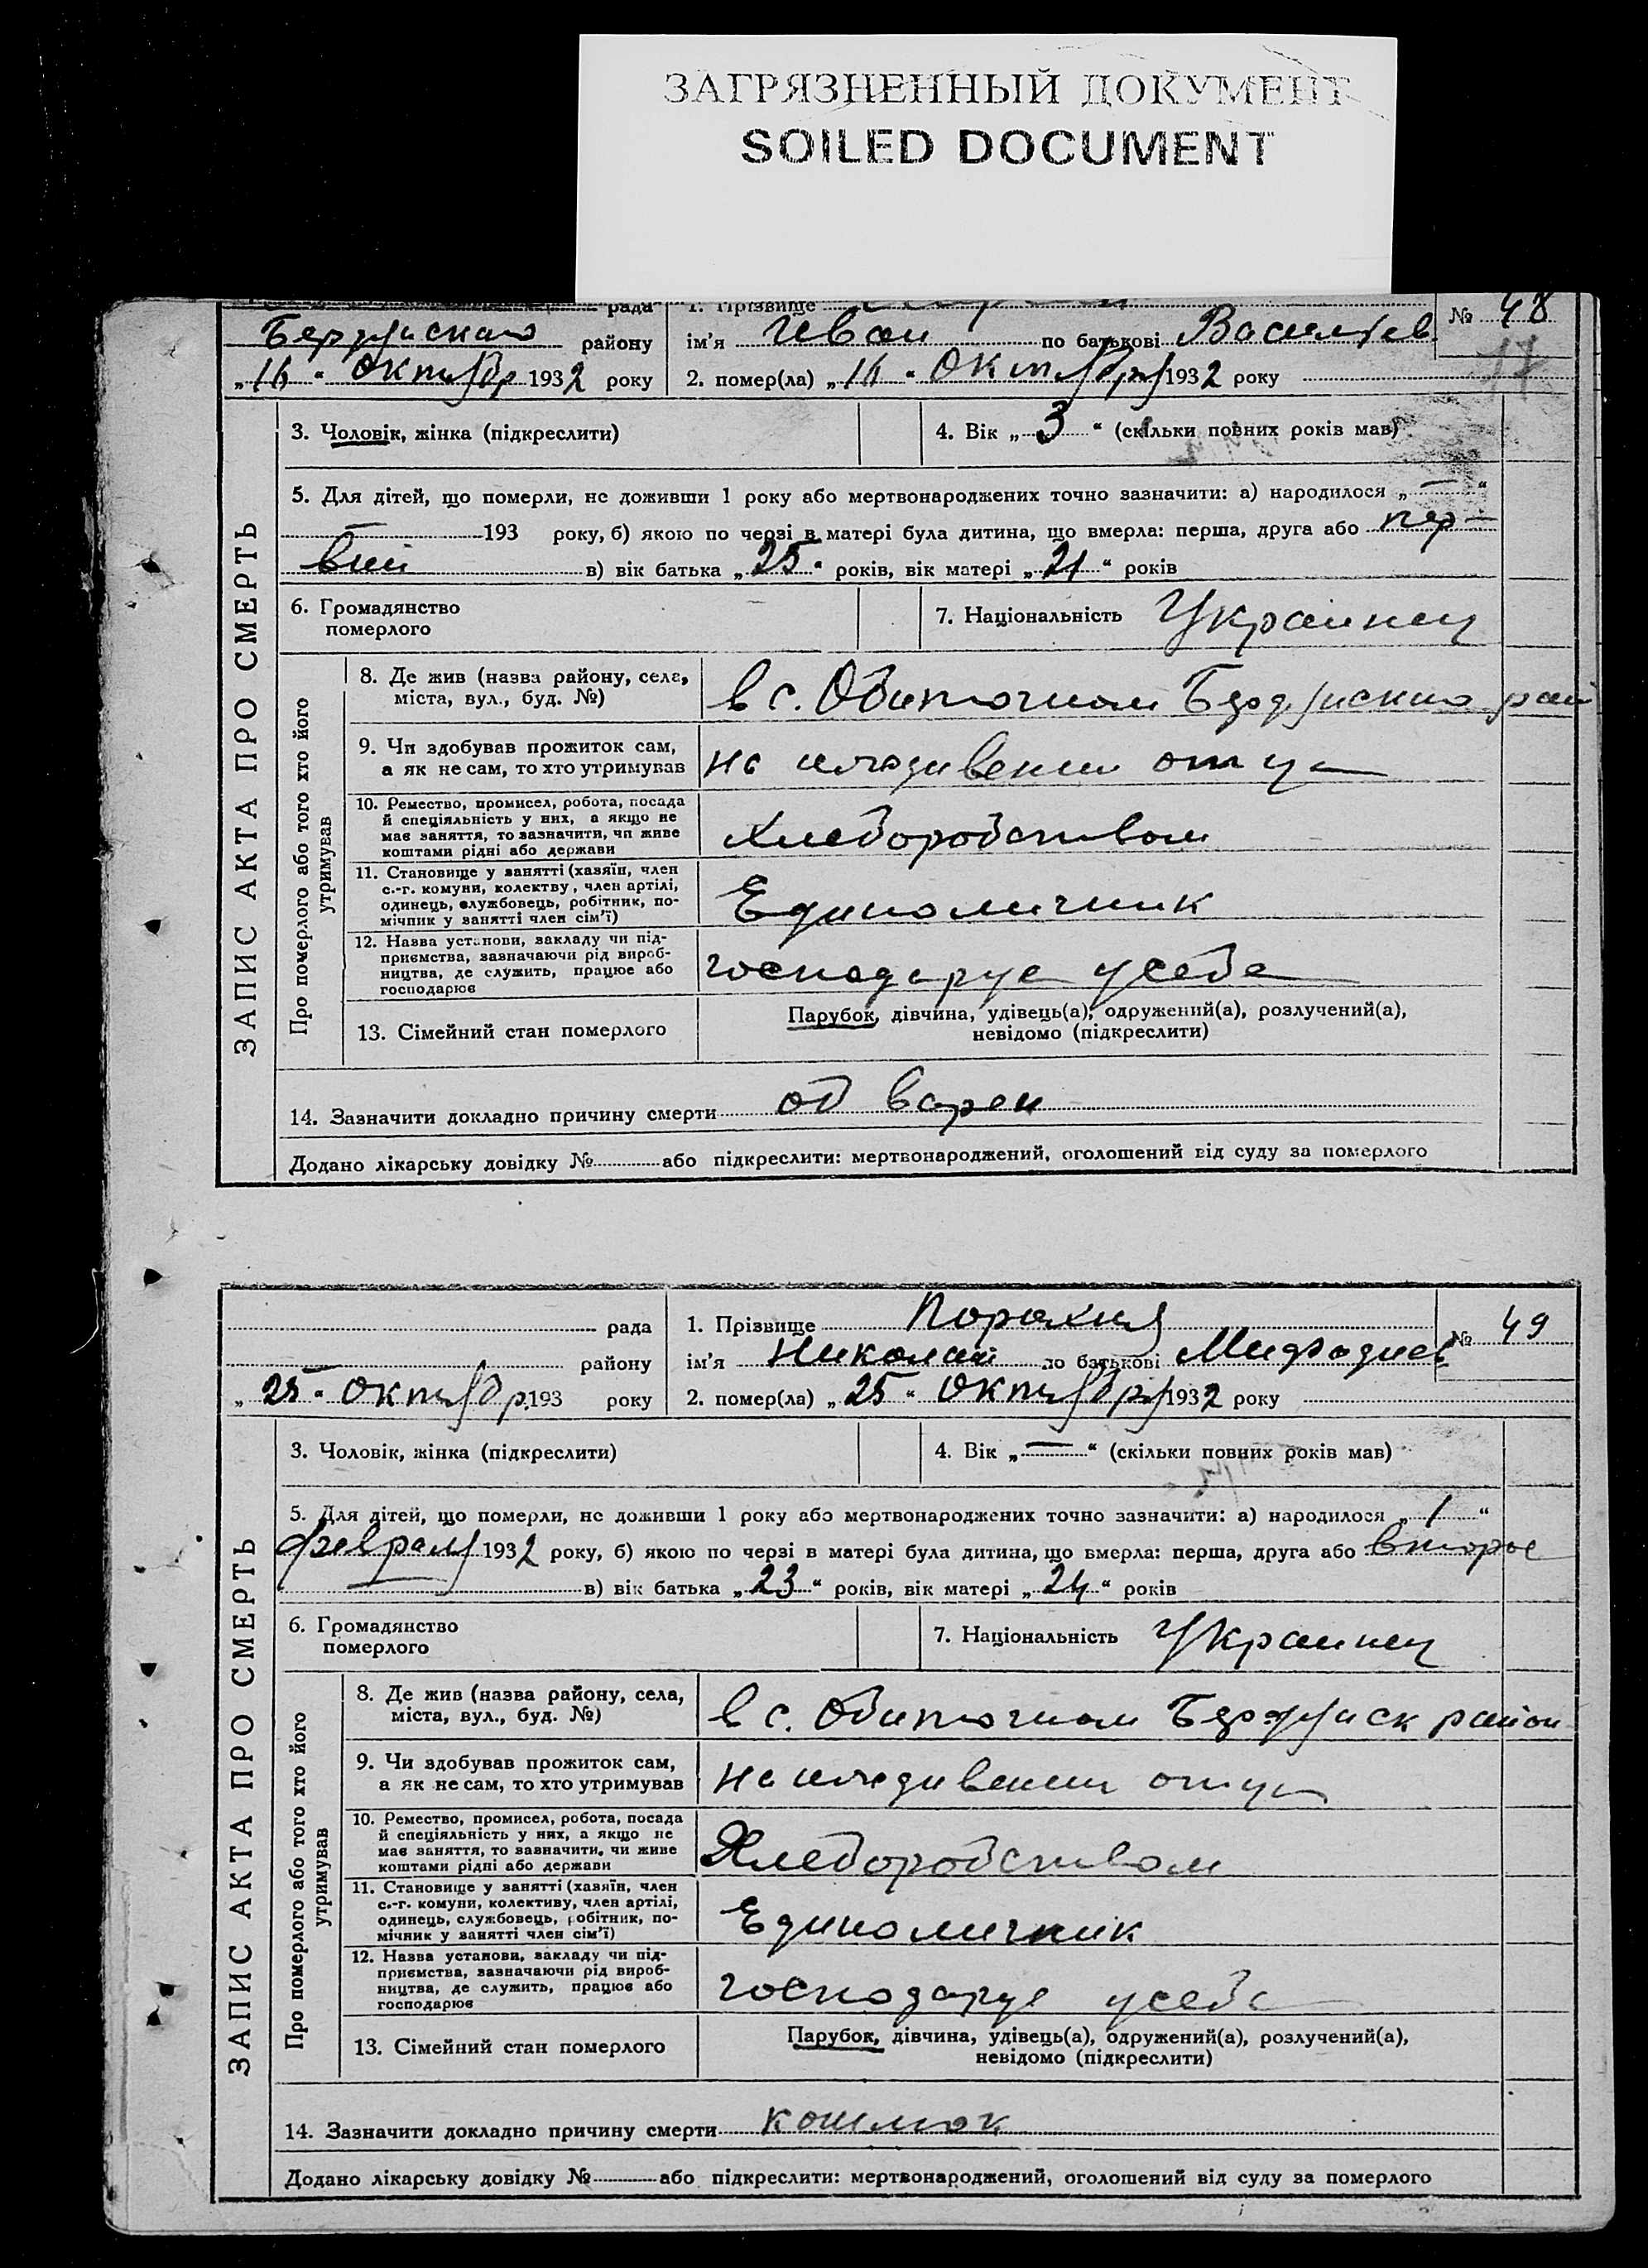 ЗАГРЯЗНЕННЫЙ ДОКУМЕНТ
SOILED DOCUMENT
рада 1. Прізвище № 48
району ім'я Иван по батькові Васильев
17
„16“ Октября 1932 року 2. помер(ла) „16“ Октября 1932 року
3. Чоловік, жінка (підкреслити) 4. Вік „3“ (скільки повних років мав)
5. Для дітей, що померли, не доживши 1 року або мертвонароджених точно зазначити: а) народилося „—“
— 193 року, б) якою по черзі в матері була дитина, що вмерла: перша, друга або пер-
вий в) вік батька „25“ років, вік матері „21“ років
6. Громадянство
померлого
7. Національність Украинец
8. Де жив (назва району, села,
міста, вул., буд. №)
в с. Обиточном Бердянского рай
9. Чи здобував прожиток сам,
а як не сам, то хто утримував
на иждивении отца
10. Ремество, промисел, робота, посада
й спеціяльність у них, а якщо не
має заняття, то зазначити, чи живе
коштами рідні або держави
Хлеборобством
11. Становище у занятті (хазяїн, член
с.-г. комуни, колектву, член артілі,
одинець, службовець, робітник, по-
мічник у занятті член сім'ї)
Единоличник
12. Назва установи, закладу чи під-
приємства, зазначаючи рід вироб-
ництва, де служить, працює або
господарює
господарує у себе
13. Сімейний стан померлого
Парубок, дівчина, удівець(а), одружений(а), розлучений(а),
невідомо (підкреслити)
14. Зазначити докладно причину смерти
Додано лікарську довідку № або підкреслити: мертвонароджений, оголошений від суду за померлого
ЗАПИС АКТА ПРО СМЕРТЬ
Про померлого або того хто його
утримував
рада 1. Прізвище № 49
району ім'я Николай по батькові Мифодиев
„25“ Октябр. 193 року 2. помер(ла) „25“ Октября 1932 року
3. Чоловік, жінка (підкреслити) 4. Вік „—“ (скільки повних років мав)
5. Для дітей, що померли, не доживши 1 року або мертвонароджених точно зазначити: а) народилося „1“
февраля 1932 року, б) якою по черзі в матері була дитина, що вмерла: перша, друга або второе
— в) вік батька „23“ років, вік матері „24“ років
6. Громадянство
померлого
7. Національність Украинец
8. Де жив (назва району, села,
міста, вул., буд. №)
в с. Обиточном Бердянск район
9. Чи здобував прожиток сам,
а як не сам, то хто утримував
на иждивении отца
10. Ремество, промисел, робота, посада
й спеціяльність у них, а якщо не
має заняття, то зазначити, чи живе
коштами рідні або держави
Хлеборобством
11. Становище у занятті (хазяїн, член
с.-г. комуни, колективу, член артілі,
одинець, службовець, робітник, по-
мічник у занятті член сім'ї)
Единоличник
12. Назва установи, закладу чи під-
приємства, зазначаючи рід вироб-
ництва, де служить, працює або
господарює
господарує у себе
13. Сімейний стан померлого
Парубок, дівчина, удівець(а), одружений(а), розлучений(а),
невідомо (підкреслити)
14. Зазначити докладно причину смерти
Додано лікарську довідку № або підкреслити: мертвонароджений, оголошений від суду за померлого
ЗАПИС АКТА ПРО СМЕРТЬ
Про померлого або того хто його
утримував